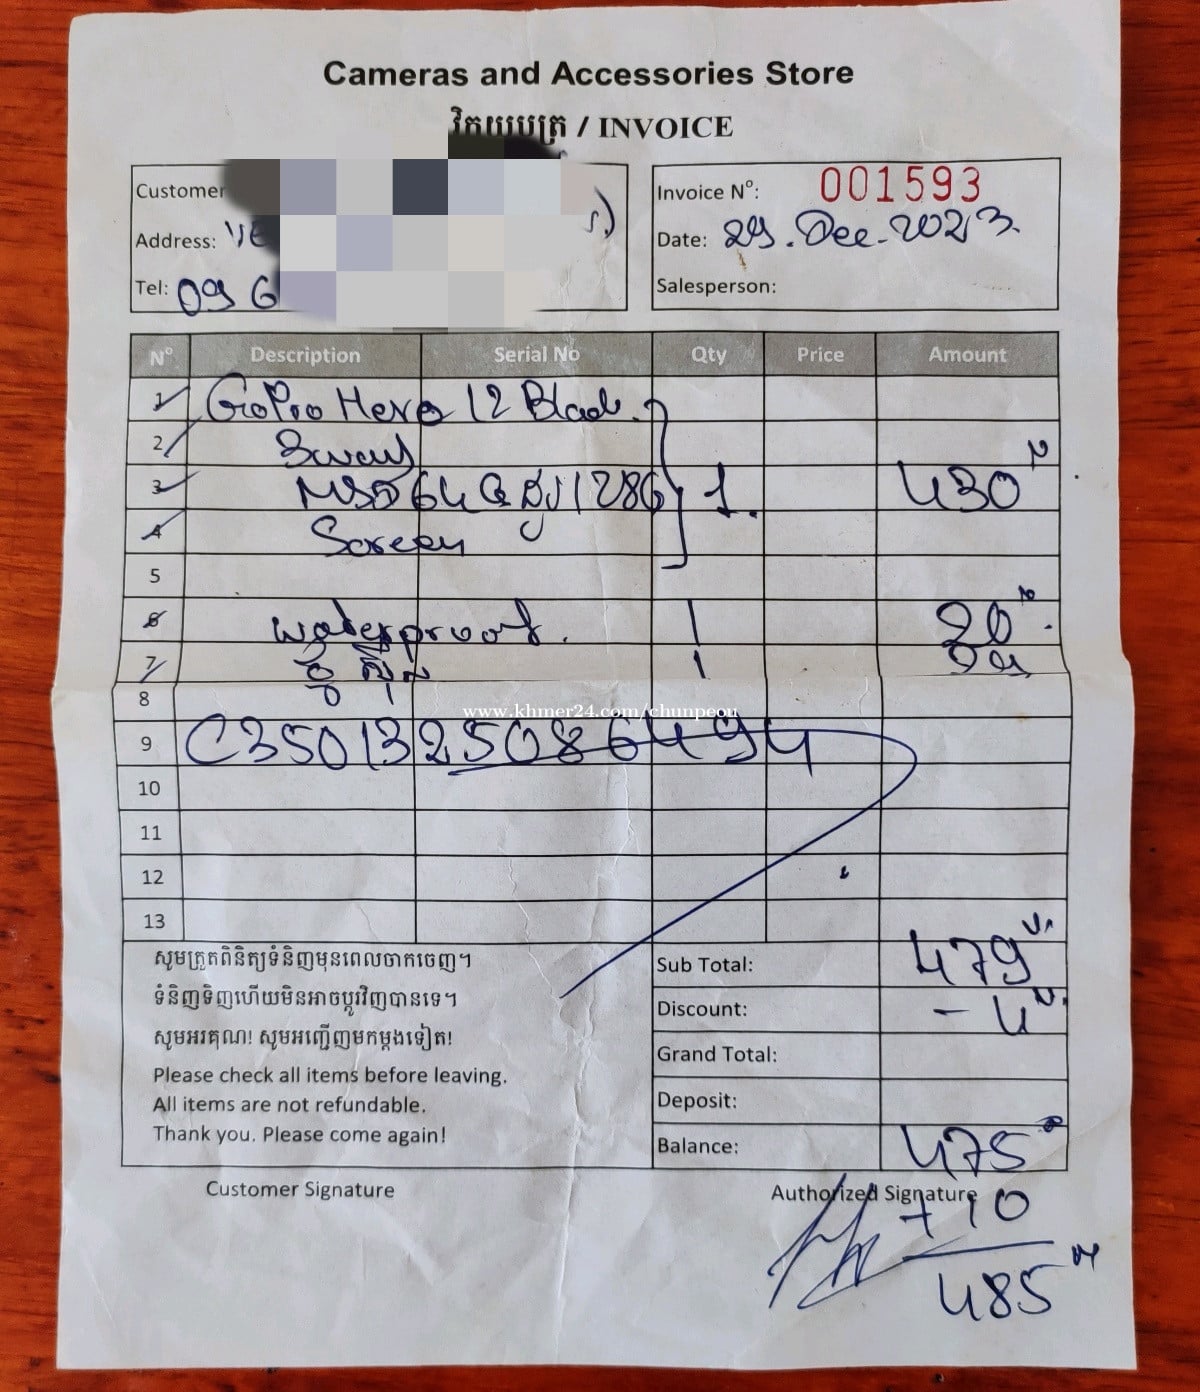 Cameras and Accessories Store
វិក្កយបត្រ / INVOICE
Customer
Address:
Tel: 096
Invoice Nº: 001593
Date: 29. Dec. 2023.
Salesperson:
Nº Description Serial No Qty Price Amount
1 GoPro Hero 12 Black.
2
3 64G 128G 1. 430
4 Screen
5
6 waterproof. 1 20
7 1
8
www.khmer24.com/chunpeou
9 C3501325086494
10
11
12
13
សូមត្រួតពិនិត្យទំនិញមុនពេលចាកចេញ។
ទំនិញទិញហើយមិនអាចប្តូរវិញបានទេ។
សូមអរគុណ! សូមអញ្ជើញមកម្តងទៀត!
Please check all items before leaving.
All items are not refundable.
Thank you. Please come again!
Sub Total: 479
Discount: - 4
Grand Total:
Deposit:
Balance: 475
Customer Signature
Authorized Signature
+10
485